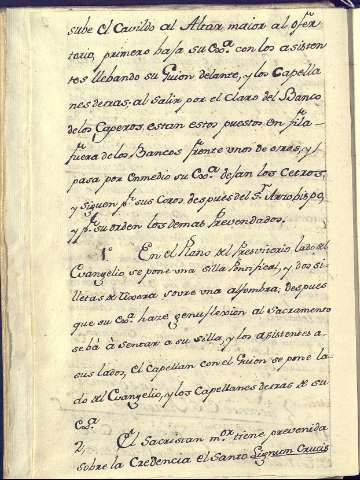 sube el Cavildo al Altar maior al ofer
torio, primero baja su Ex.ª con los asisten
tes llebando su Guion delante, y los Capella
nes detras, al salir por el Claro del Banco
de los Caperos, estan estos puestos en fila
fuera de los Bancos frente unos de otros, y
pasa por en medio su Ex.ª dejan los Cetros,
y siguen p.r sus Coros despues del S.r Arzobispo,
y p.r su orden los demas Prevendados.
1.º En el Plano del Presviterio lado del
Evangelio se pone una silla Pontifical, y dos si
lletas de tijera sovre una alfombra, despues
que su Ex.ª haze genuflexion al Sacramento
se bá à sentar a su silla, y los asistentes a
sus lados, el Capellan con el Guion se pone la
do del Evangelio, y los Capellanes detras de su
Ex.ª
2, El Sacristan m.or tiene prevenida
sobre la Credencia el Santo Lignum Crucis